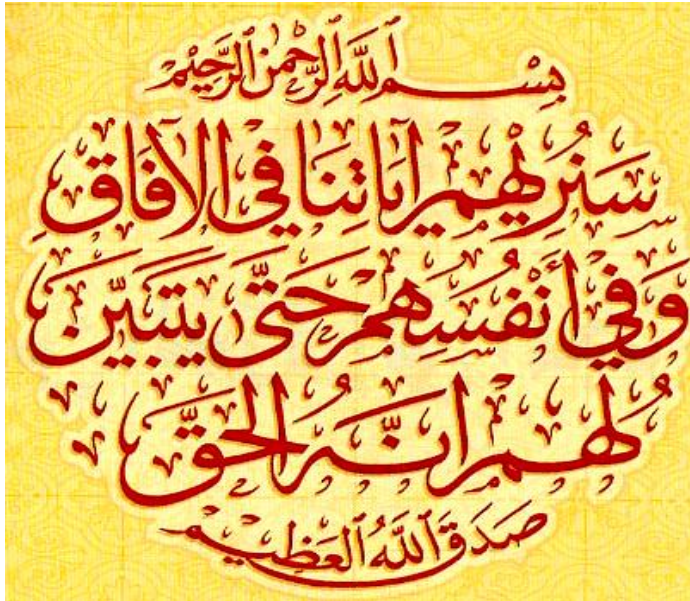 بسم الله الرحمن الرحيم
سَنُرِيْهِمْ آيَاتِنَا فِي الآفَاقِ
وَفِي أَنْفُسِهِمْ حَتَّى يَتَبَيَّنَ
لَهُمْ انَّهُ الحَقُّ
صَدَقَ اللهُ العَظِيم